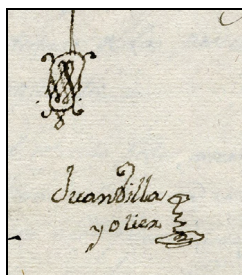 Juan Dilla
y oliex